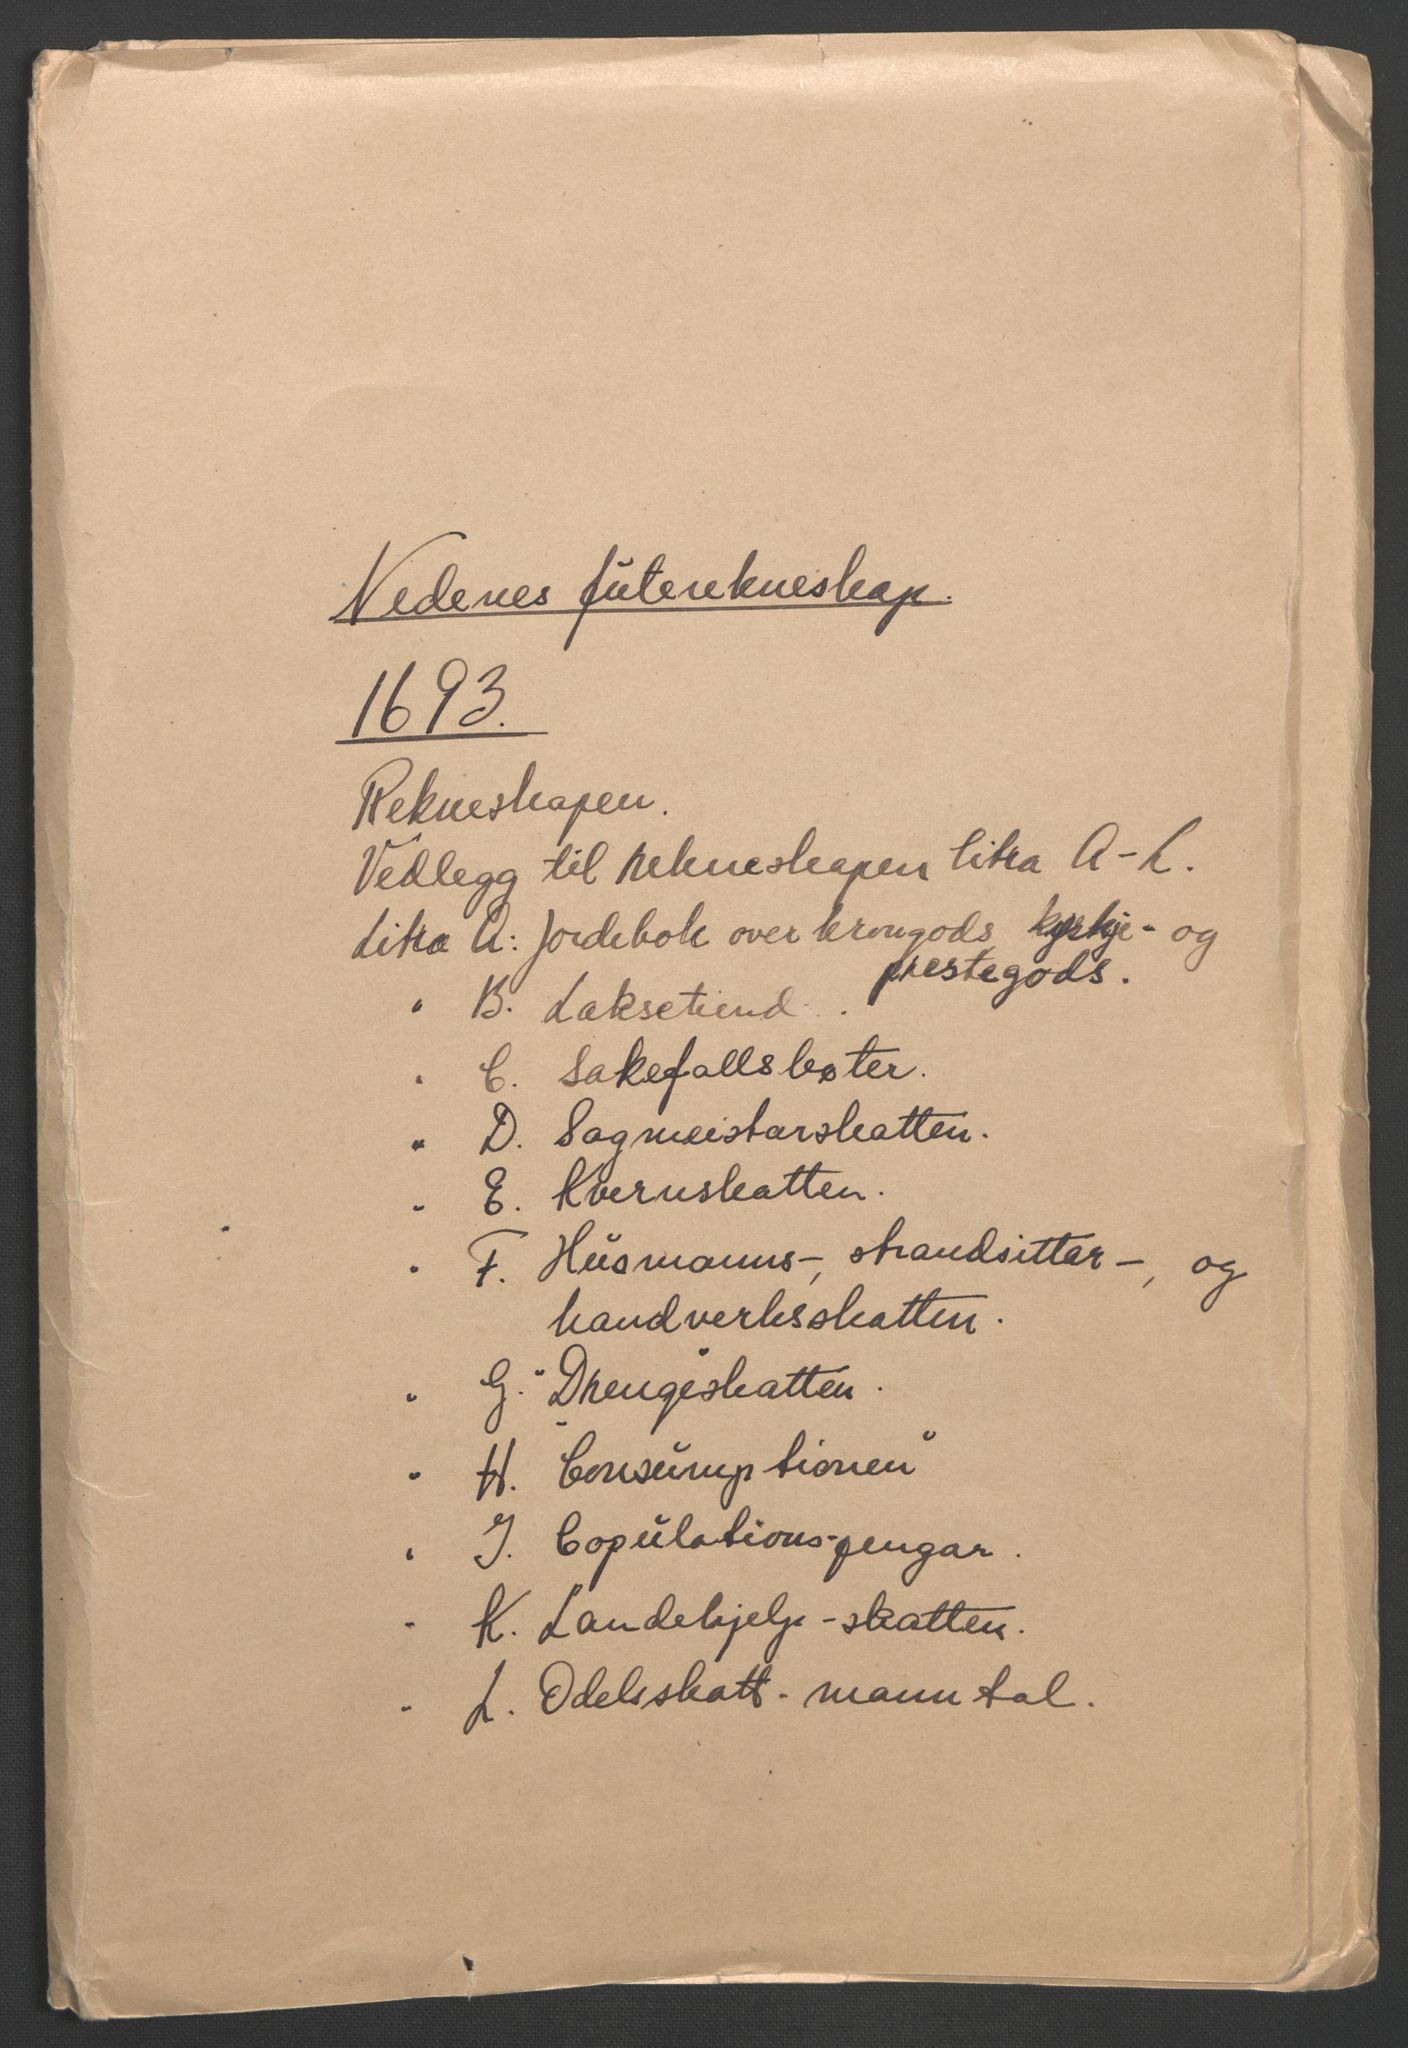 Nedenes futerekneskap.
1693.
Rekneskapen.
Vedlegg til rekneskapen litra A-L.
Litra A: Jordebok over krongods kyrkje- og
prestegods.
" B. Laksetiend.
" C. Sakefallsbøter.
" D. Sagmeistarskatten.
" E. Kvernskatten.
" F. Husmanns-, strandsittar-, og
handverksskatten.
" G. "Drengeskatten".
" H. "Consumptionen"
" J. Copulations-pengar.
" K. Landehjelp-skatten.
" L. Odelsskatt-manntal.